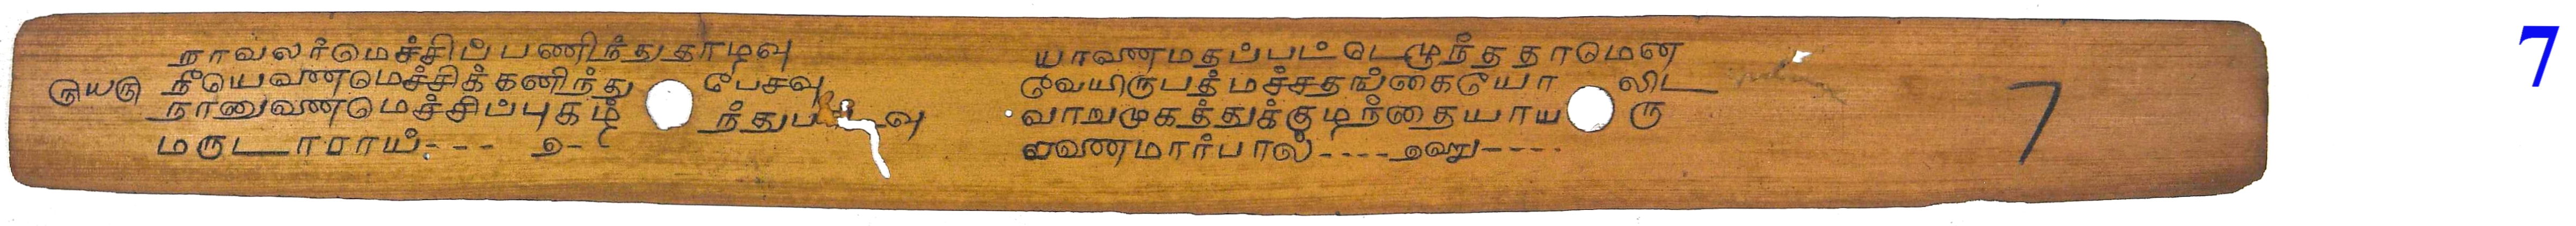 நாவலர்மெச்சிப்பணிந்துதாழவு
௫யரு நீயெவணமெச்சிக்கனிந்து பேசவு
நானுவணமெச்சிப்புகழ் ந்துப வு
மருடாராய்--- ௨-
யாவணமதப்பட்டெழுந்ததாமென
வேயிருபத்மச்சதங்கையோ லிட
வாறுமுகத்துக்குழந்தையாய ரு
வணமார்பால்----
7
7